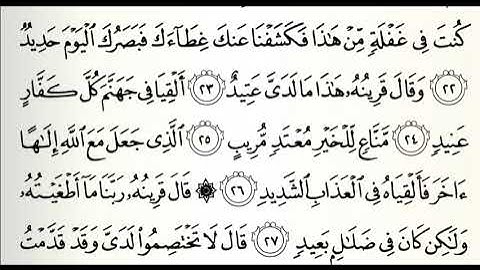 كُنتَ فِي غَفْلَةٍ مِّنْ هَٰذَا فَكَشَفْنَا عَنكَ غِطَآءَكَ فَبَصَرُكَ ٱلْيَوْمَ حَدِيدٌ
٢٢ وَقَالَ قَرِينُهُۥ هَٰذَا مَا لَدَىَّ عَتِيدٌ ٢٣ أَلْقِيَا فِي جَهَنَّمَ كُلَّ كَفَّارٍ
عَنِيدٍ ٢٤ مَّنَّاعٍ لِّلْخَيْرِ مُعْتَدٍ مُّرِيبٍ ٢٥ ٱلَّذِي جَعَلَ مَعَ ٱللَّهِ إِلَٰهًا
ءَاخَرَ فَأَلْقِيَاهُ فِي ٱلْعَذَابِ ٱلشَّدِيدِ ٢٦ ۞ قَالَ قَرِينُهُۥ رَبَّنَا مَآ أَطْغَيْتُهُۥ
وَلَٰكِن كَانَ فِي ضَلَٰلٍۭ بَعِيدٍ ٢٧ قَالَ لَا تَخْتَصِمُوا۟ لَدَىَّ وَقَدْ قَدَّمْتُ